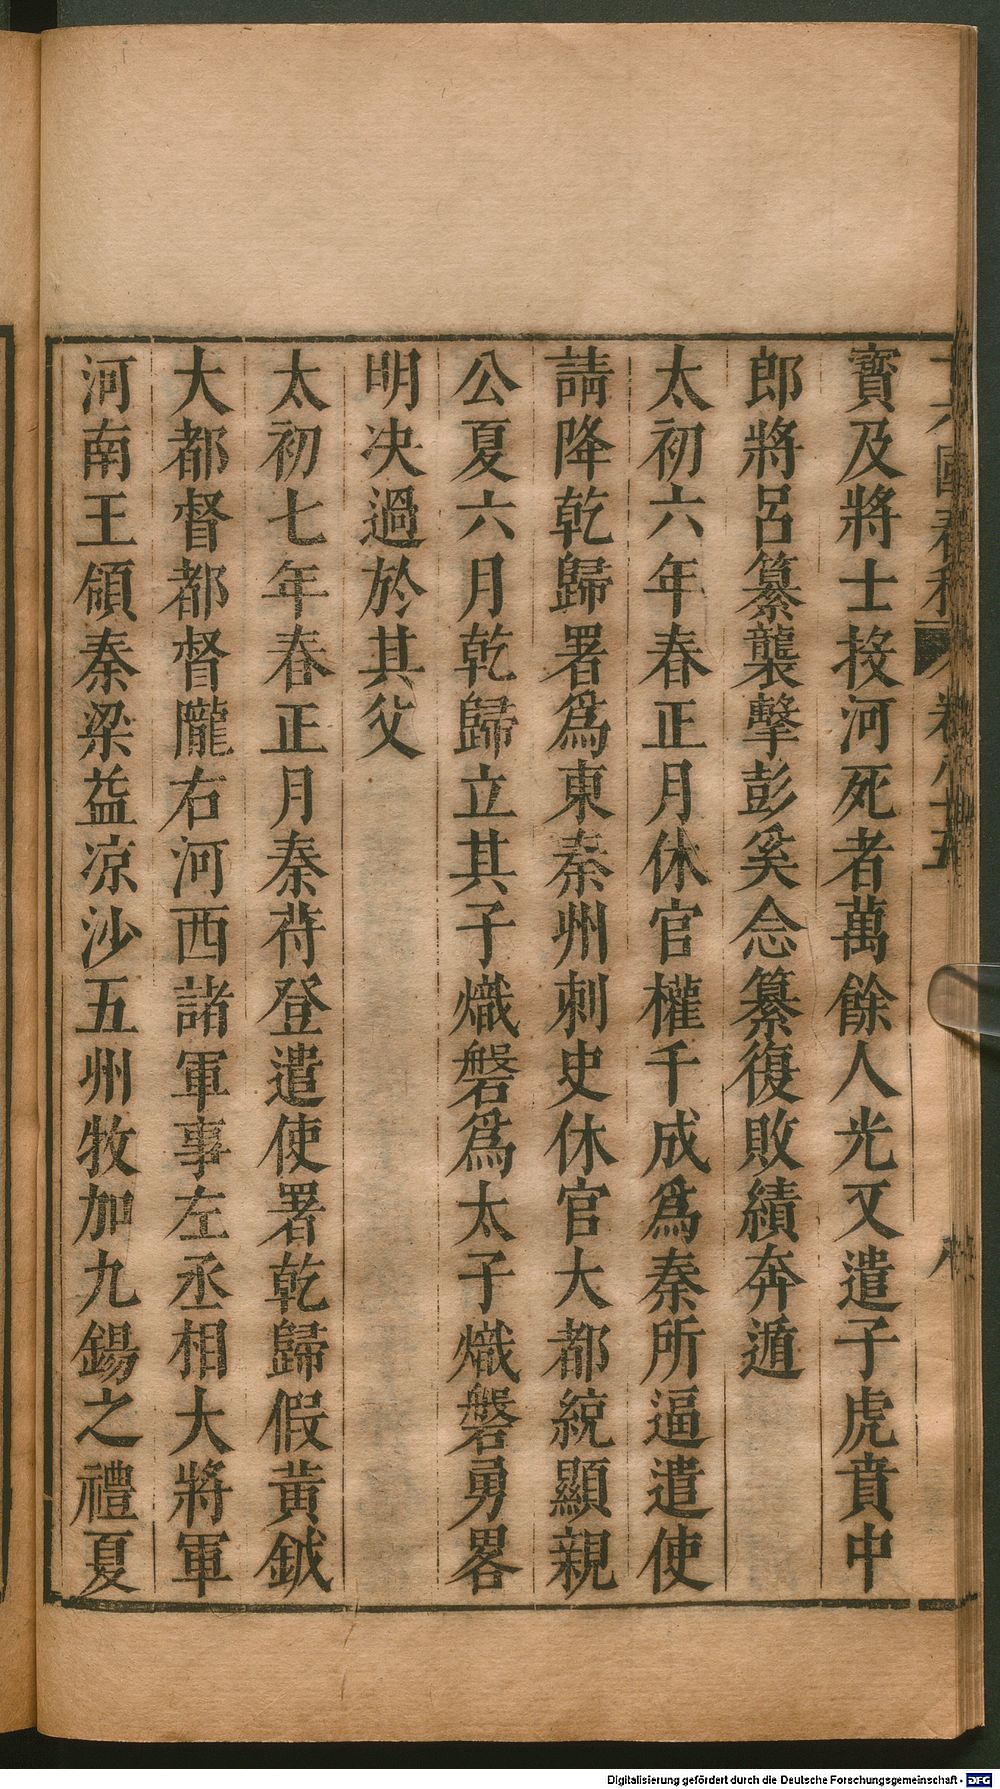 寶及將士投河死者萬餘人光又遣子虎賁中
郎將呂纂襲擊彭奚念纂復敗績奔遁
太初六年春正月休官權千成爲秦所逼遣使
請降乾歸署爲東秦州刺史休官大都統顯親
公夏六月乾歸立其子熾磐爲太子熾磐勇畧
明决過於其父
太初七年春正月秦苻登遣使署乾歸假黃鉞
大都督都督隴右河西諸軍事左丞相大將軍
河南王領秦梁益凉沙五州牧加九錫之禮夏
Digitalisierung gefördert durch die Deutsche Forschungsgemeinschaft - DFG